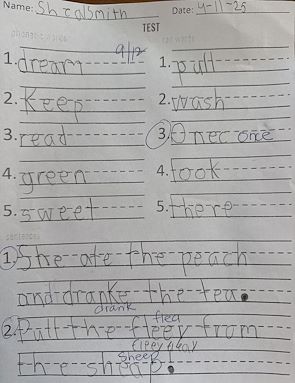 Name: Shea Smith Date: 4-11-25
TEST
phonetic words red words
9/12
1. dream 1. pull
2. Keep 2. wash
3. read 3. Onec once
4. green 4. look
5. sweet 5. there
sentences
1. She ate the peach
and dranke the tea.
drank flea
2. Pull the fleey from
sheep
the sheap!